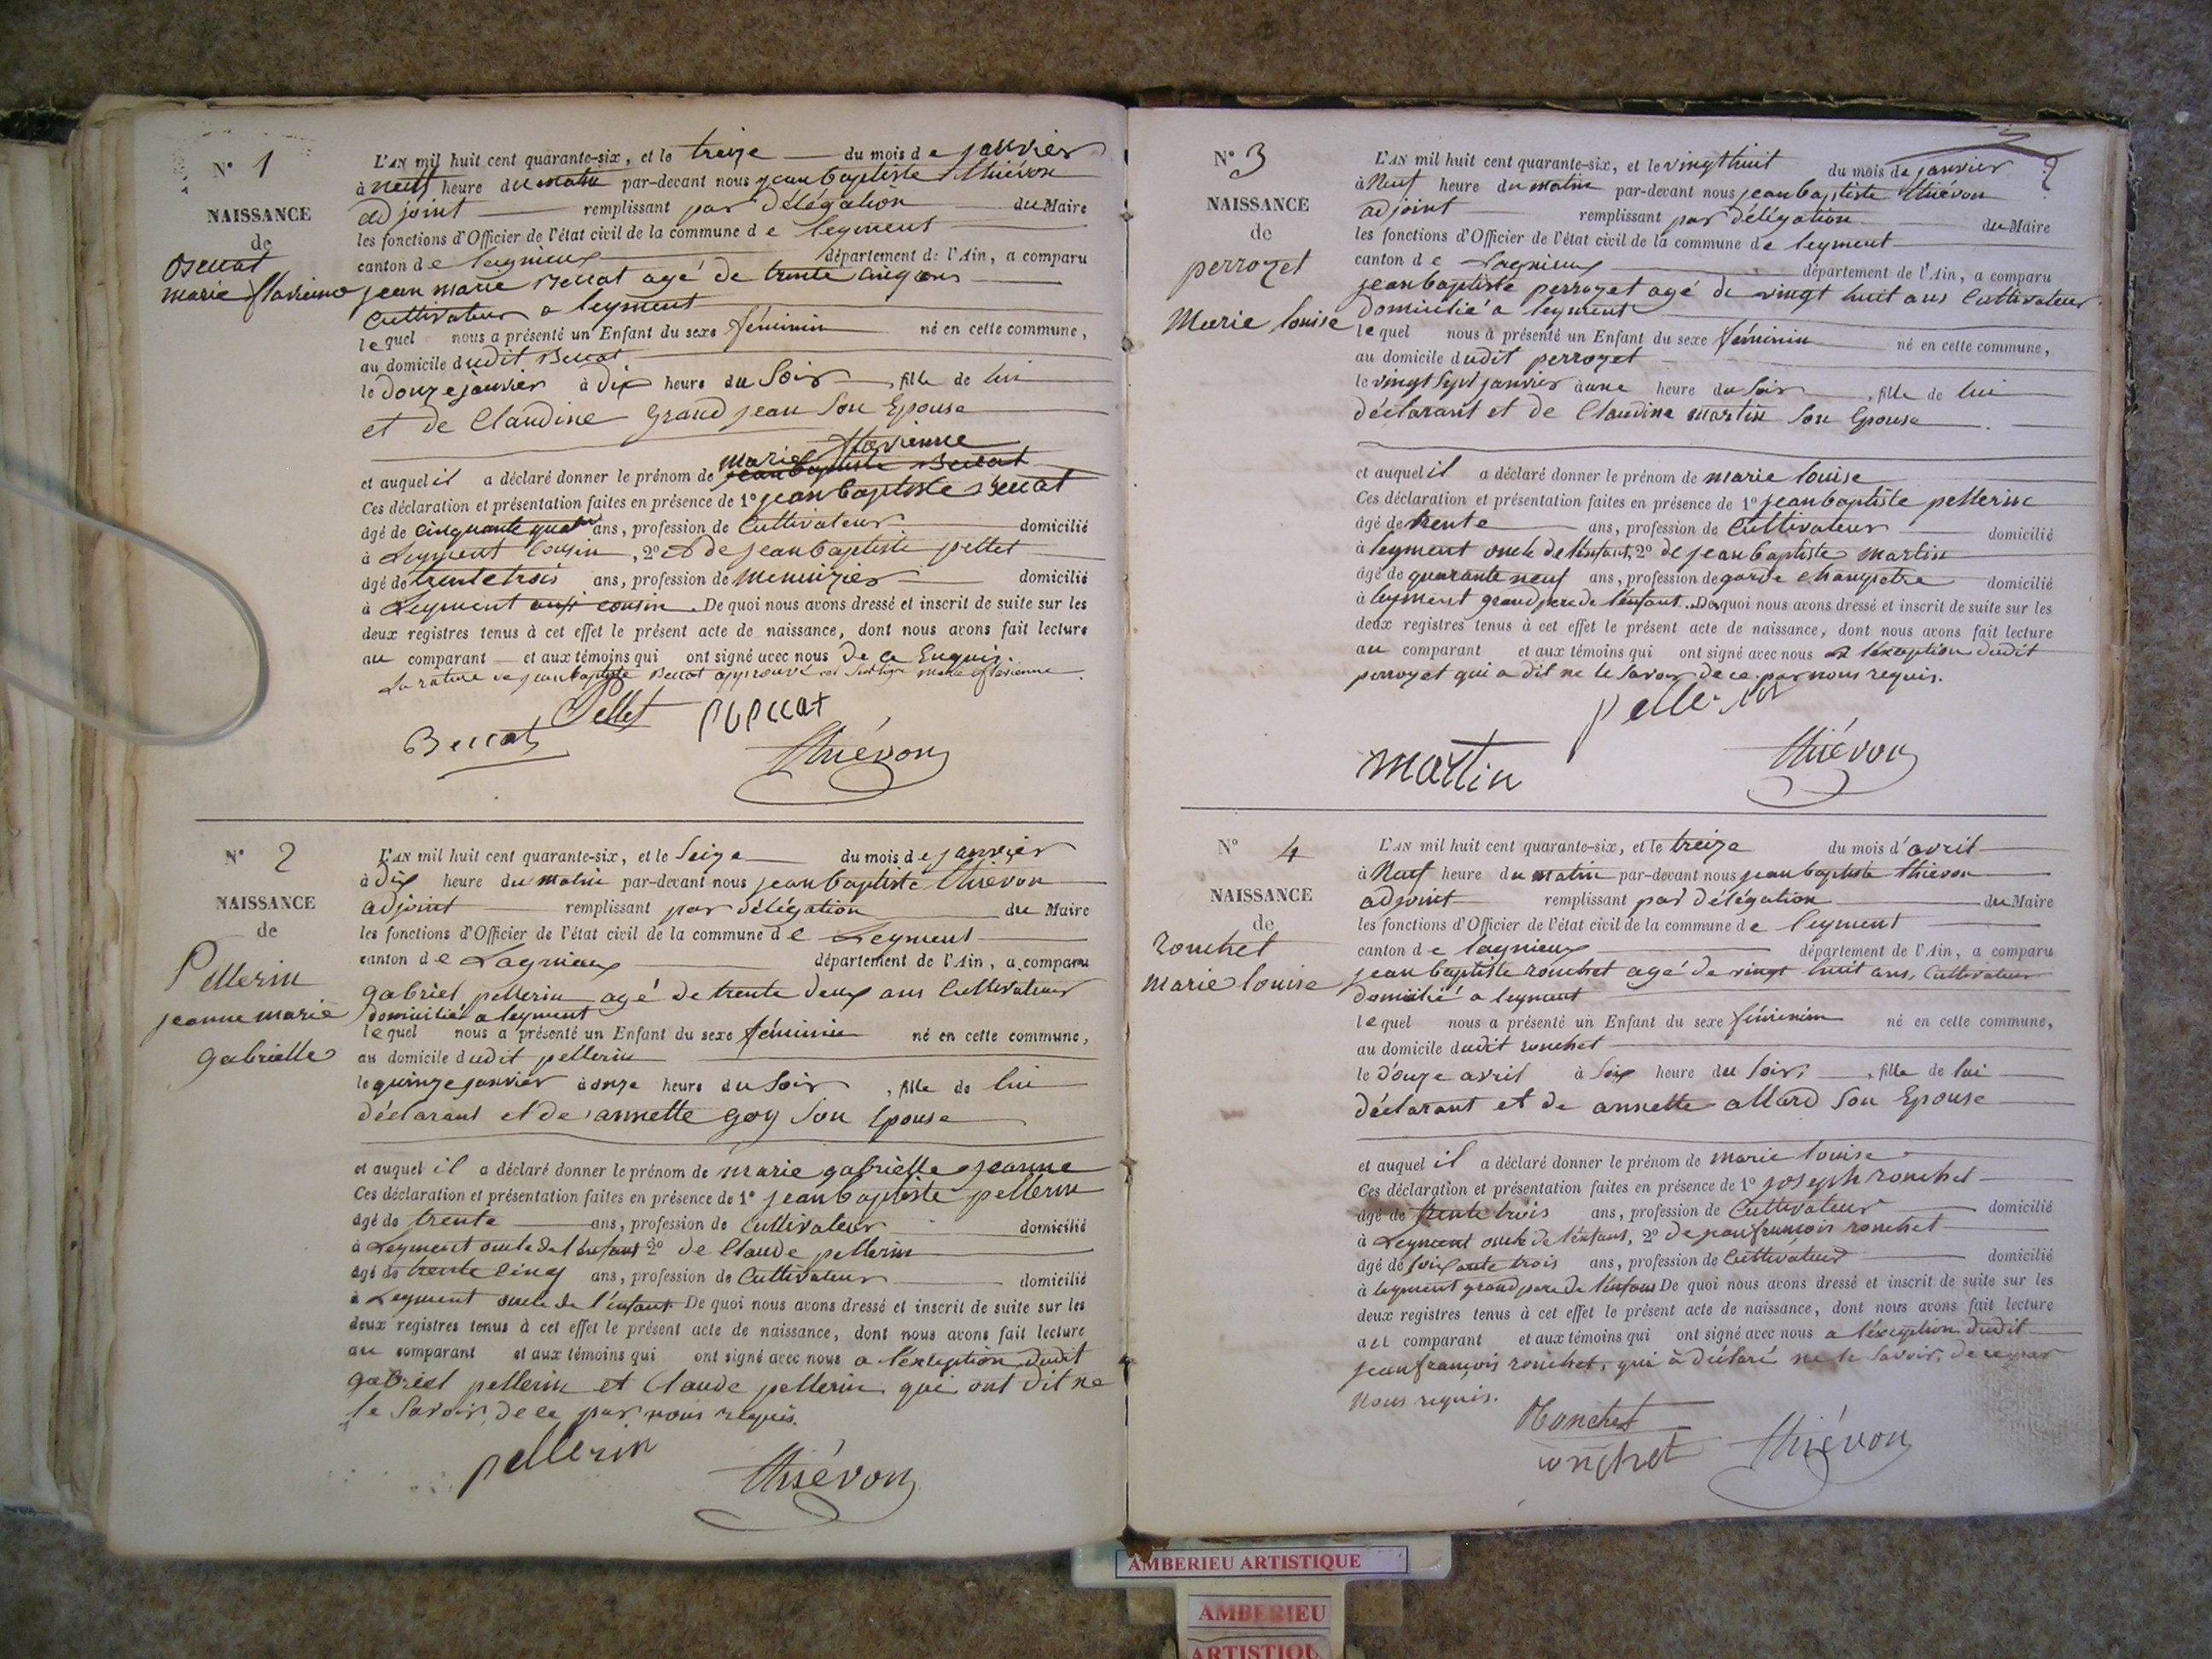 N° 1
NAISSANCE
de
Beccat
marie flavienne
L'AN mil huit cent quarante-six, et le treize du mois de janvier
à neuf heure du matin par-devant nous jean baptiste thiévon
adjoint remplissant par délégation du Maire
les fonctions d'Officier de l'état civil de la commune de leyment
canton de lagnieux département de l'Ain, a comparu
jean marie Beccat agé de trente cinq ans
Cultivateur a leyment
lequel nous a présenté un Enfant du sexe féminin né en cette commune,
au domicile dudit Beccat
le Douze janvier à dix heure du Soir, fille de lui
et de Claudine Grandjean Son Epouse
marie flavienne
et auquel il a déclaré donner le prénom de jean baptiste Beccat
Ces déclaration et présentation faites en présence de 1° jean baptiste Beccat
âgé de cinquante quatre ans, profession de Cultivateur domicilié
à Leyment Cousin, 2° et de jean baptiste pellet
âgé de trente trois ans, profession de menuizier domicilié
à Leyment aussi cousin. De quoi nous avons dressé et inscrit de suite sur les
deux registres tenus à cet effet le présent acte de naissance, dont nous avons fait lecture
au comparant et aux témoins qui ont signé avec nous De ce Enquis.
La rature de jean baptiste Beccat approuvé marie flavienne
Pellet
Beccat
thiévon
N° 2
NAISSANCE
de
Pellerin
jeanne marie
gabrielle
L'AN mil huit cent quarante-six, et le Seize du mois de janvier
à dix heure du matin par-devant nous jean baptiste thiévon
adjoint remplissant par délégation du Maire
les fonctions d'Officier de l'état civil de la commune de Leyment
canton de Lagnieux département de l'Ain, a comparu
gabriel pellerin agé de trente deux ans Cultivateur
domicilié a leyment
lequel nous a présenté un Enfant du sexe féminin né en cette commune,
au domicile dudit pellerin
le quinze janvier à onze heure du Soir, fille de lui
déclarant et de annette goy Son Epouse
et auquel il a déclaré donner le prénom de marie gabrielle jeanne
Ces déclaration et présentation faites en présence de 1° jean baptiste pellerin
âgé de trente ans, profession de Cultivateur domicilié
à Leyment oncle de l'enfant 2° de Claude pellerin
âgé de trente cinq ans, profession de Cultivateur domicilié
à Leyment oncle de l'enfant De quoi nous avons dressé et inscrit de suite sur les
deux registres tenus à cet effet le présent acte de naissance, dont nous avons fait lecture
au comparant et aux témoins qui ont signé avec nous a l'exception dudit
gabriel pellerin et Claude pellerin qui ont dit ne
le Savoir, de ce par nous requis.
pellerin
thiévon
N° 3
NAISSANCE
de
perrozet
Marie louise
L'AN mil huit cent quarante-six, et le vingt huit du mois de janvier
à Neuf heure du matin par-devant nous jean baptiste thiévon
adjoint remplissant par délégation du Maire
les fonctions d'Officier de l'état civil de la commune de leyment
canton de Lagnieux département de l'Ain, a comparu
jean baptiste perrozet agé de vingt huit ans Cultivateur
Domicilié a leyment
lequel nous à présenté un Enfant du sexe féminin né en cette commune,
au domicile dudit perrozet
le vingt Sept janvier à une heure du Soir, fille de lui
déclarant et de Claudine martin Son Epouse
et auquel il a déclaré donner le prénom de marie louise
Ces déclaration et présentation faites en présence de 1° jean baptiste pellerin
âgé de trente ans, profession de Cultivateur domicilié
à leyment oncle de l'enfant, 2° de jean baptiste martin
âgé de quarante neuf ans, profession de garde champetre domicilié
à leyment grand pere de l'enfant. De quoi nous avons dressé et inscrit de suite sur les
deux registres tenus à cet effet le présent acte de naissance, dont nous avons fait lecture
au comparant et aux témoins qui ont signé avec nous a l'exception dudit
perrozet qui a dit ne le Savoir de ce par nous requis.
pellerin
martin
thiévon
N° 4
NAISSANCE
de
ronchet
marie louise
L'AN mil huit cent quarante-six, et le treize du mois d'avril
à Neuf heure du matin par-devant nous jean baptiste thiévon
adjoint remplissant par délégation du Maire
les fonctions d'Officier de l'état civil de la commune de leyment
canton de lagnieux département de l'Ain, a comparu
jean baptiste ronchet agé de vingt huit ans, Cultivateur
domicilié a leyment
lequel nous a présenté un Enfant du sexe féminin né en cette commune,
au domicile dudit ronchet
le douze avril à Six heure du Soir, fille de lui
déclarant et de annette allard Son Epouse
et auquel il a déclaré donner le prénom de marie louise
Ces déclaration et présentation faites en présence de 1° joseph ronchet
âgé de trente trois ans, profession de Cultivateur domicilié
à Leyment oncle de l'enfant, 2° de jean françois ronchet
âgé de soixante trois ans, profession de Cultivateur domicilié
à leyment grand pere de l'enfant De quoi nous avons dressé et inscrit de suite sur les
deux registres tenus à cet effet le présent acte de naissance, dont nous avons fait lecture
au comparant et aux témoins qui ont signé avec nous a l'exception dudit
jean françois ronchet, qui à déclaré ne le Savoir, de ce par
Nous requis.
Ronchet
ronchet
thiévon
AMBERIEU ARTISTIQUE
AMBERIEU
ARTISTIQU